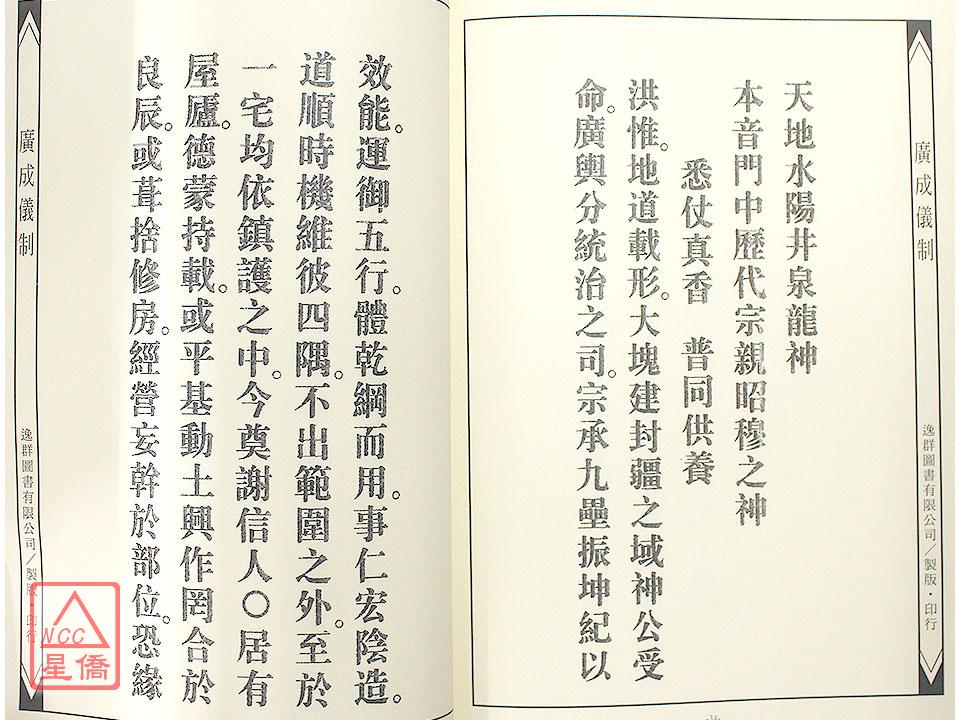 廣成儀制
逸群圖書有限公司/製版·印行
天地水陽井泉龍神
本音門中歷代宗親昭穆之神
悉仗真香 普同供養
洪惟。地道載形。大塊建封疆之域神公受
命。廣輿分統治之司。宗承九壘振坤紀以
效能。運御五行。體乾綱而用。事仁宏陰造。
道順時機維彼四隅。不出範圍之外。至於
一宅均依鎮護之中。今奠謝信人○居有
屋廬。德蒙持載。或平基動土興作罔合於
良辰。或葺捨修房。經營妄幹於部位。恐緣
廣成儀制
逸群圖書有限公司/製版·印行
NCC
星僑